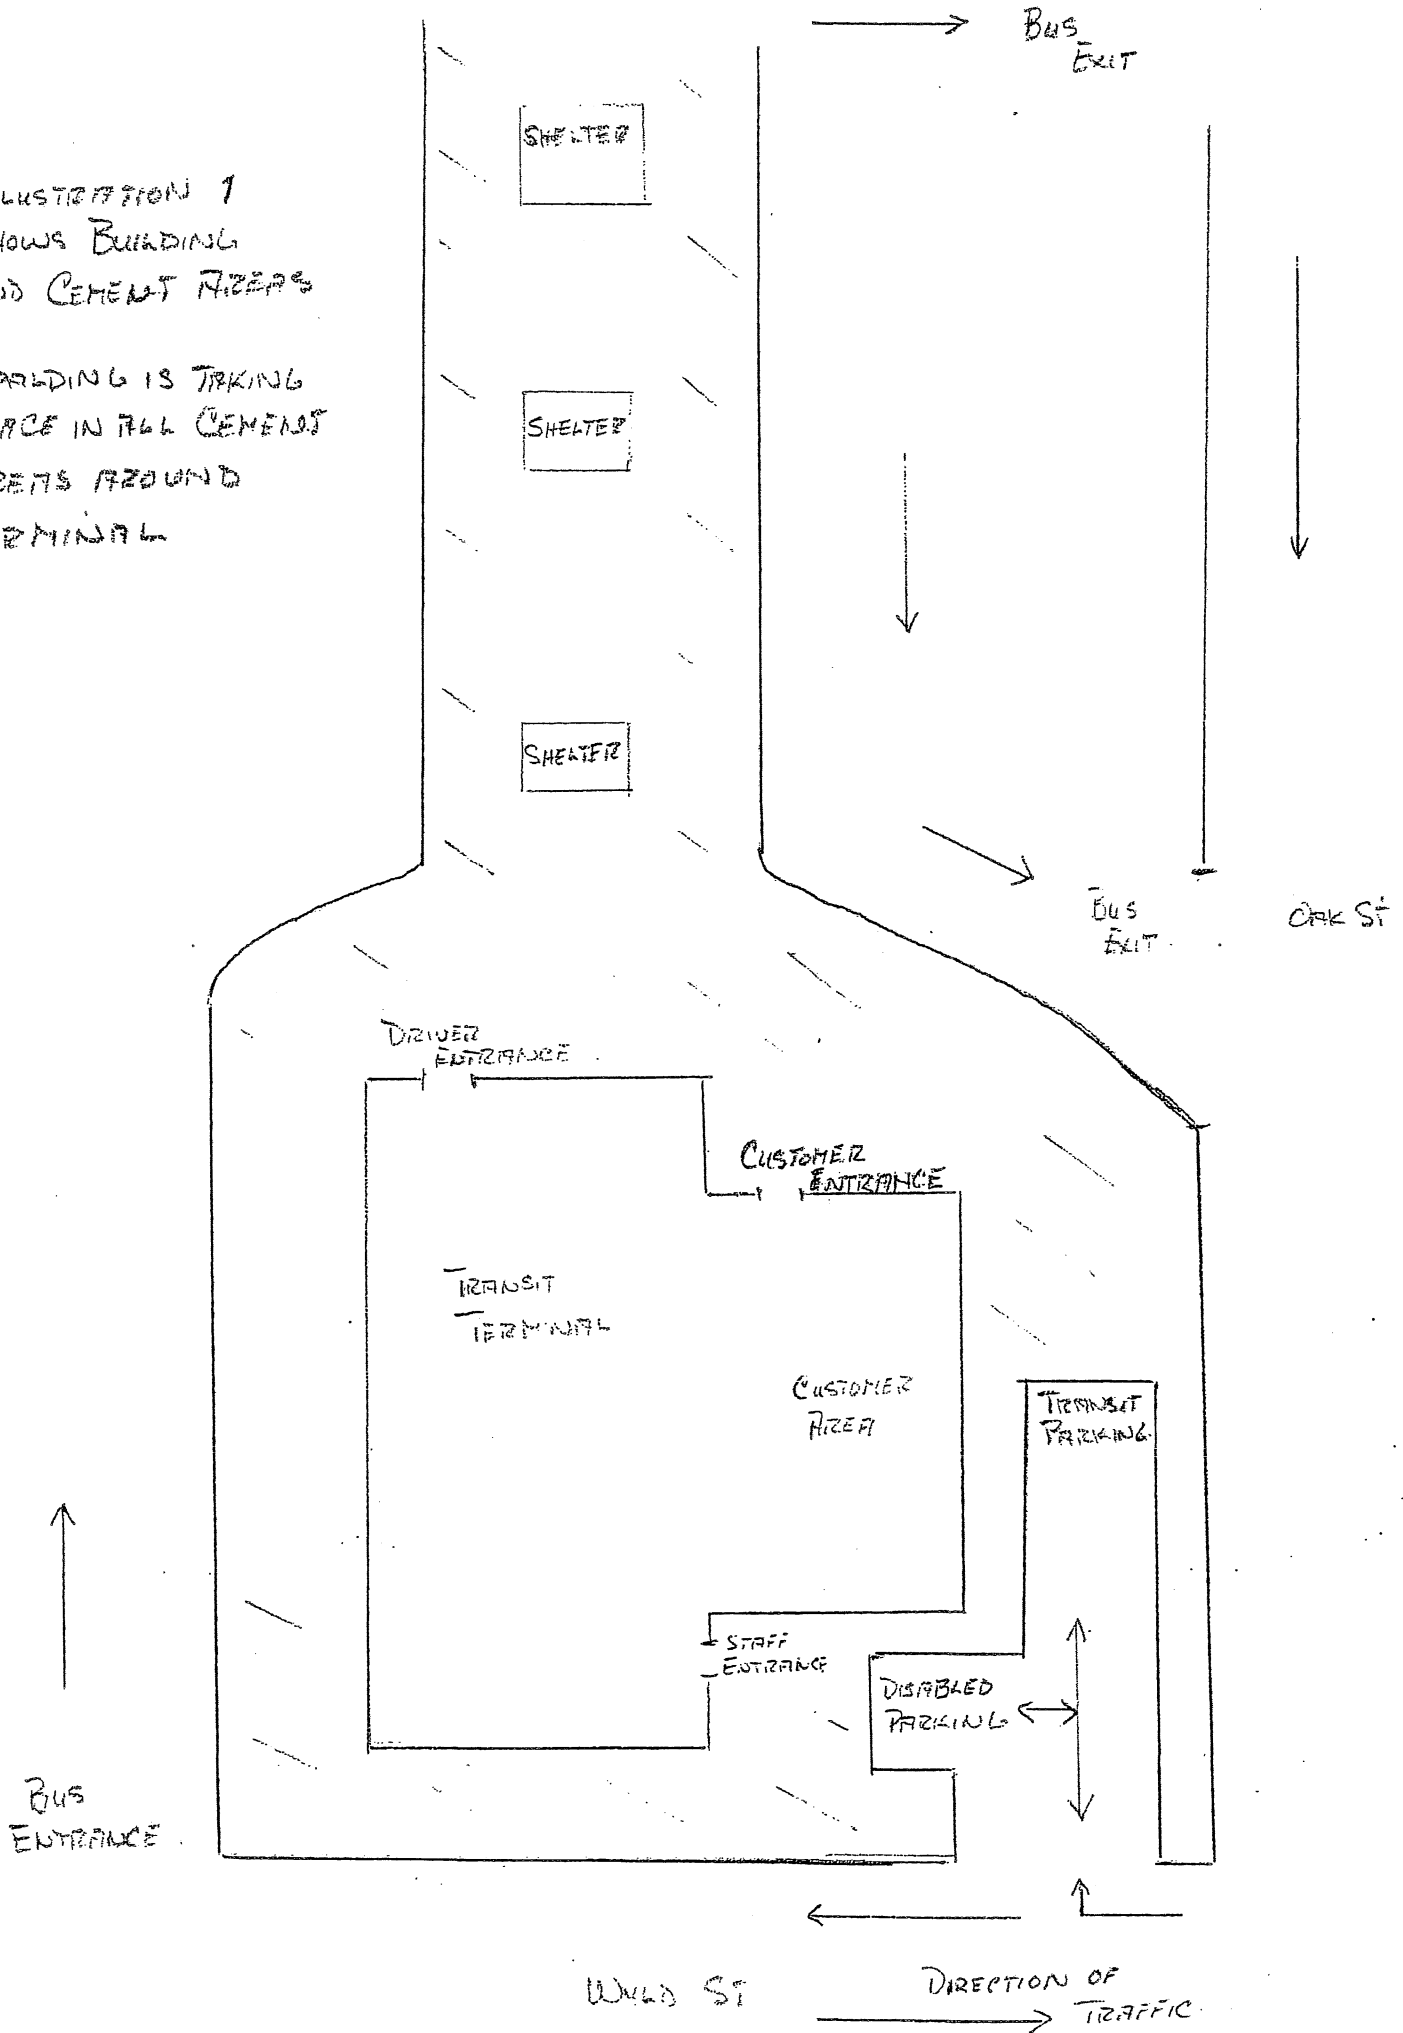 BUS
EXIT
SHELTER
LUSTRATION 1
HOWS BUILDING
ND CEMENT AREAS
ARLDING IS TAKING
ACE IN ALL CEMENT
REAS AROUND
RMINAL
SHELTER
SHELTER
BUS
EXIT
OAK ST
DRIVER
ENTRANCE
CUSTOMER
ENTRANCE
TRANSIT
TERMINAL
CUSTOMER
AREA
TRANSIT
PARKING
STAFF
ENTRANCE
DISABLED
PARKING
BUS
ENTRANCE
WYLD ST
DIRECTION OF
TRAFFIC